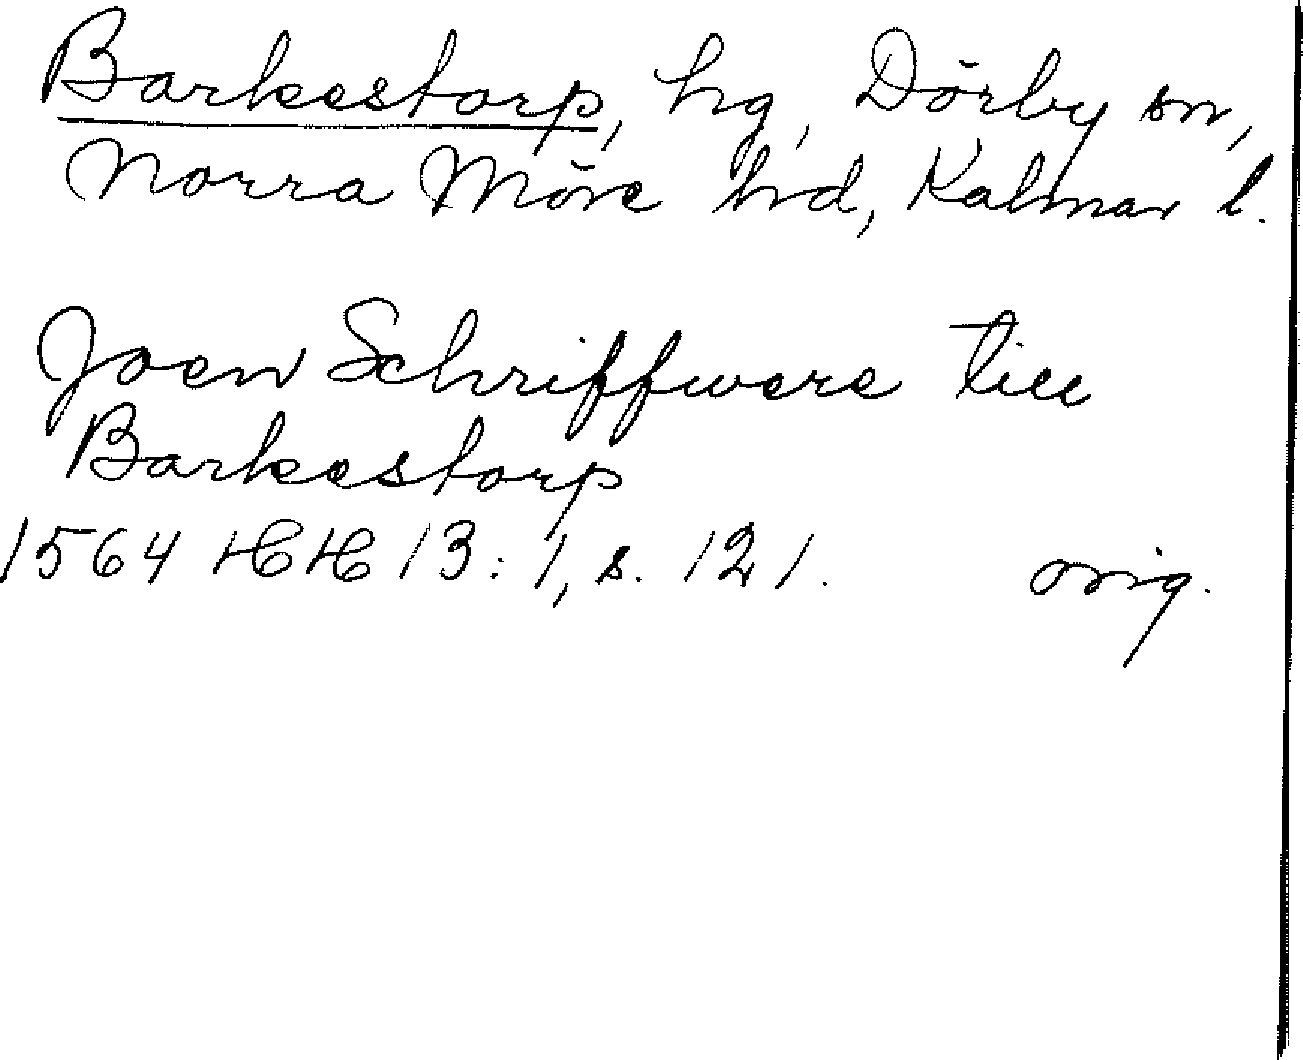 Barkestorp, hg, Dörby sn,
Norra Möre hrd, Kalmar l.
Joen Schriffwere till
Barkestorp
1564 HH 13:1, s. 121. orig.